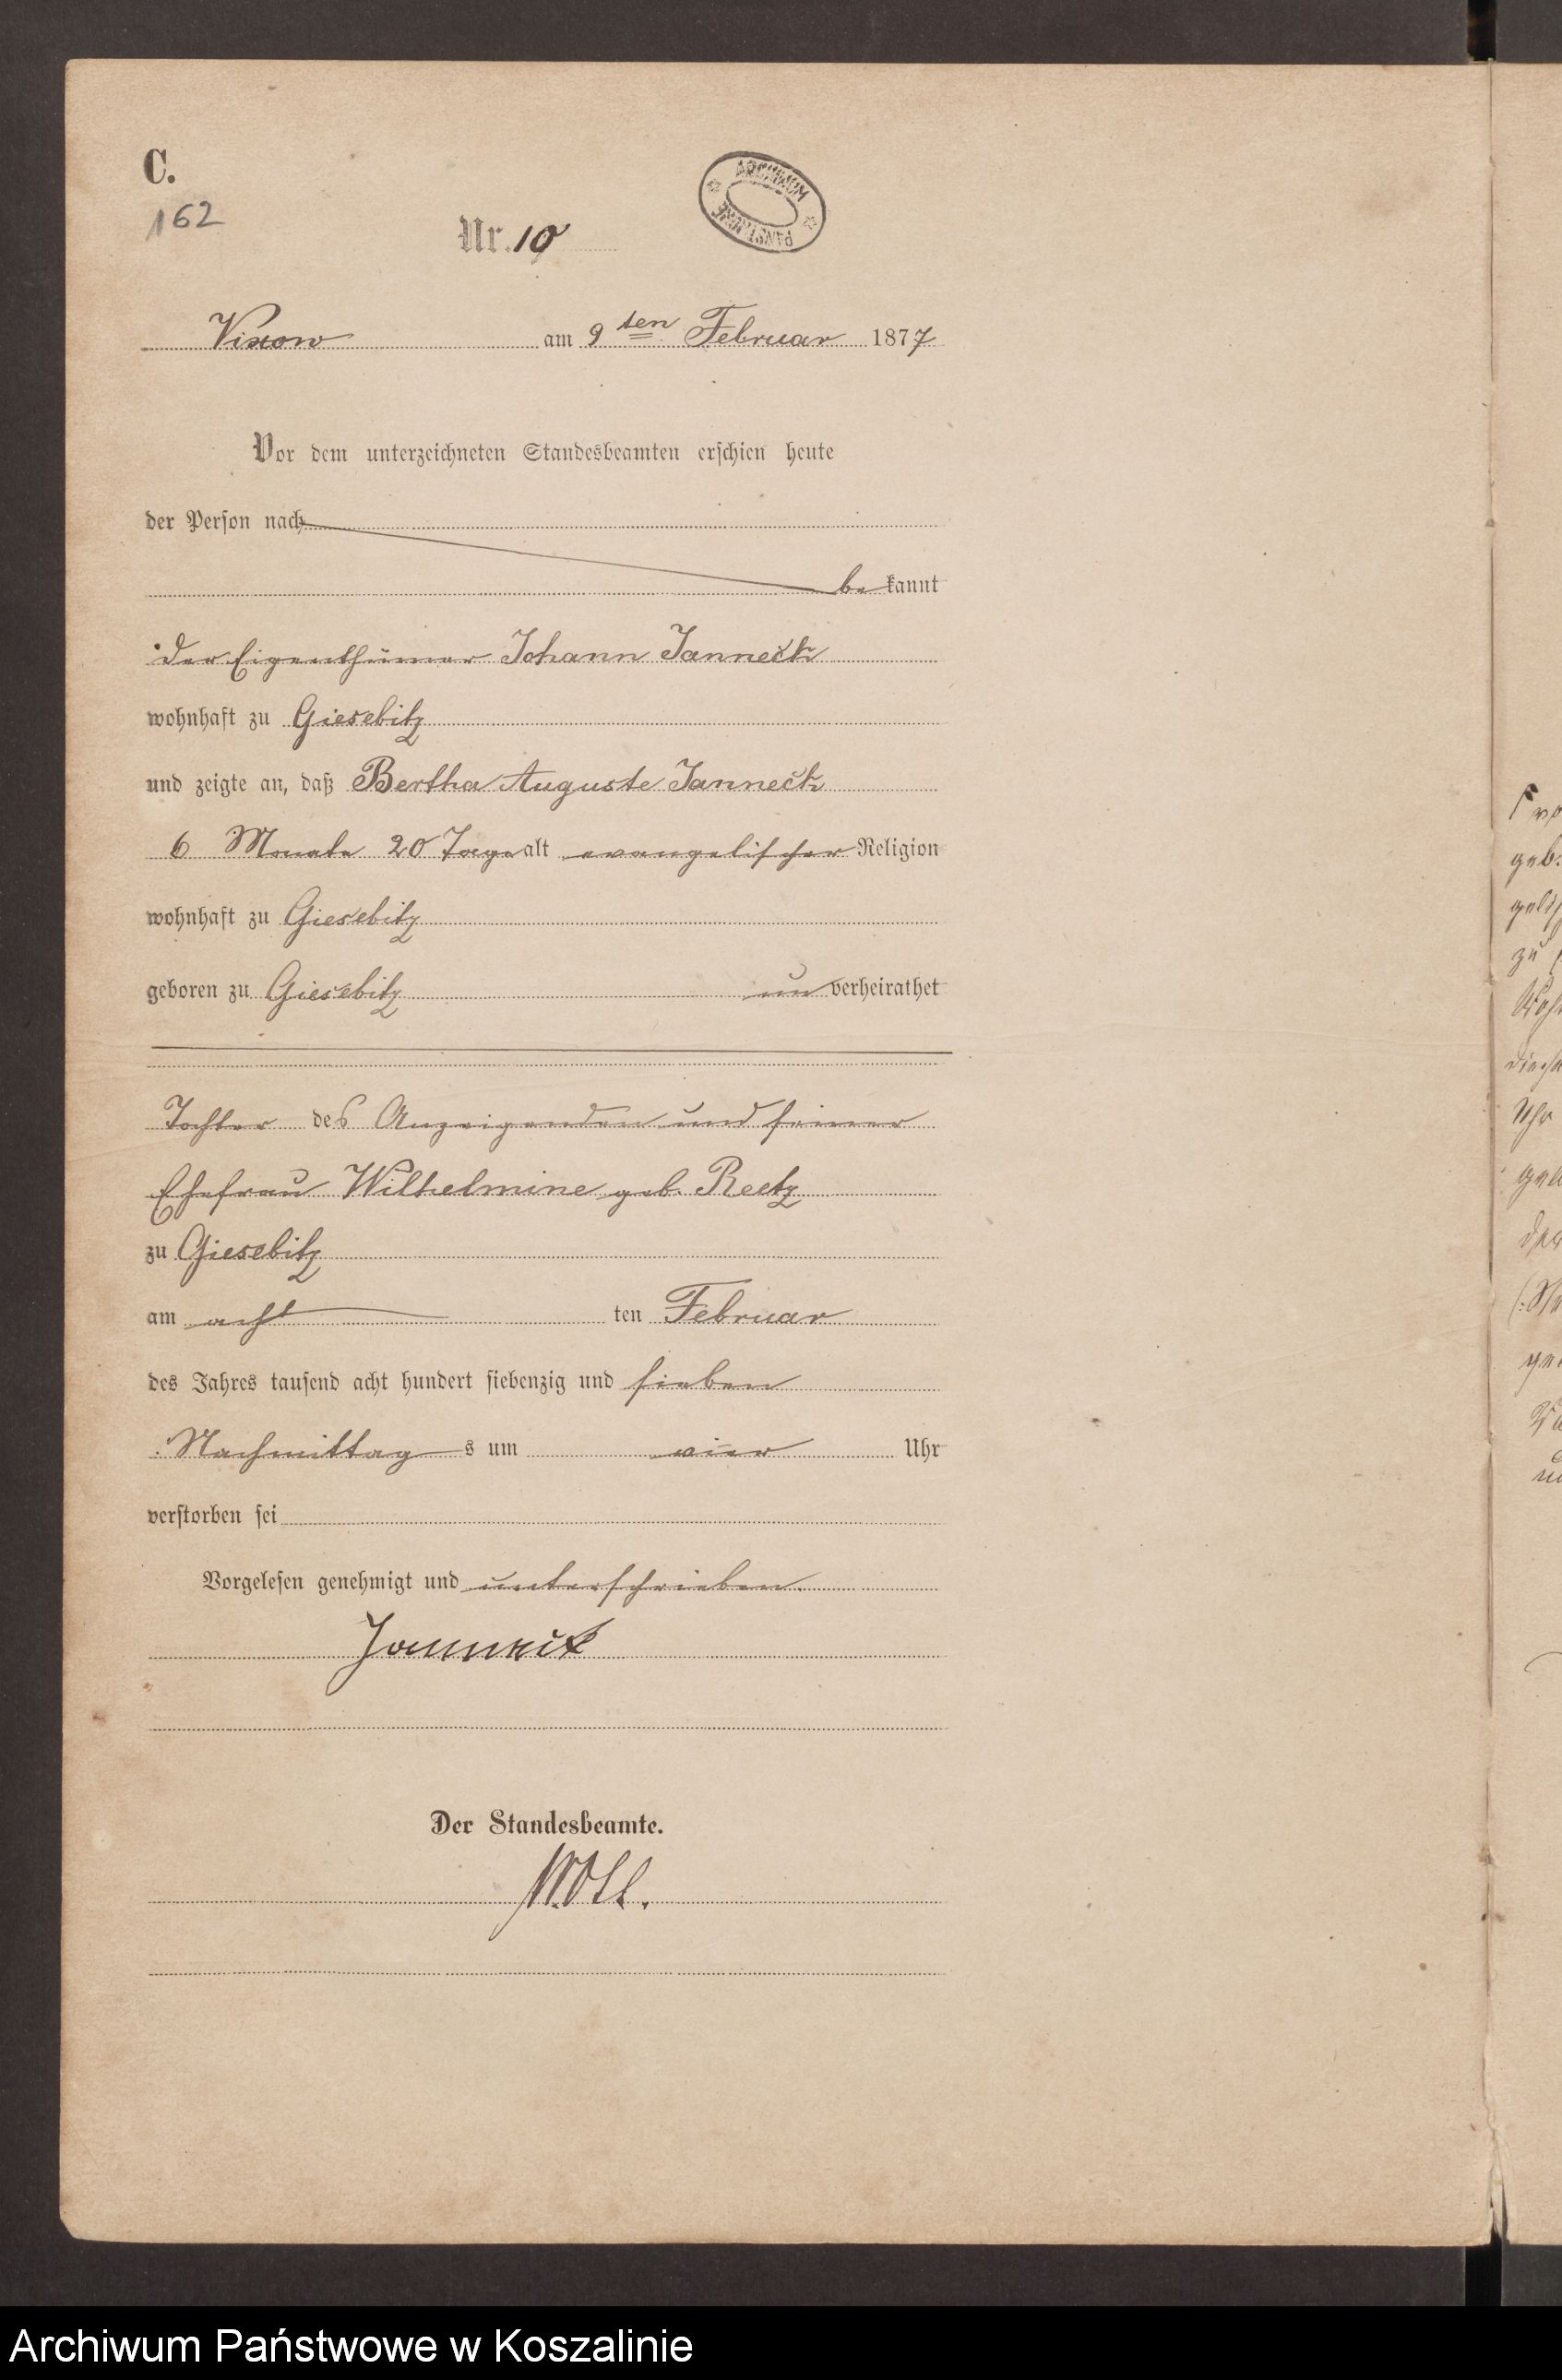 C.
162
Nr. 10
ARCHIWUM PAŃSTWOWE
Vixow am 9ten Februar 1877
Vor dem unterzeichneten Standesbeamten erschien heute
der Person nach
bekannt
der Eigenthümer Johann Janneck
wohnhaft zu Giesebitz
und zeigte an, daß Bertha Auguste Janneck
6 Monate 20 Tage alt evangelischer Religion
wohnhaft zu Giesebitz
geboren zu Giesebitz unverheirathet
Tochter des Anzeigenden und seiner
Ehefrau Wilhelmine geb. Reetz
zu Giesebitz
am acht ten Februar
des Jahres tausend acht hundert siebenzig und sieben
Nachmittags um vier Uhr
verstorben sei
Vorgelesen genehmigt und unterschrieben.
Der Standesbeamte.
Archiwum Państwowe w Koszalinie